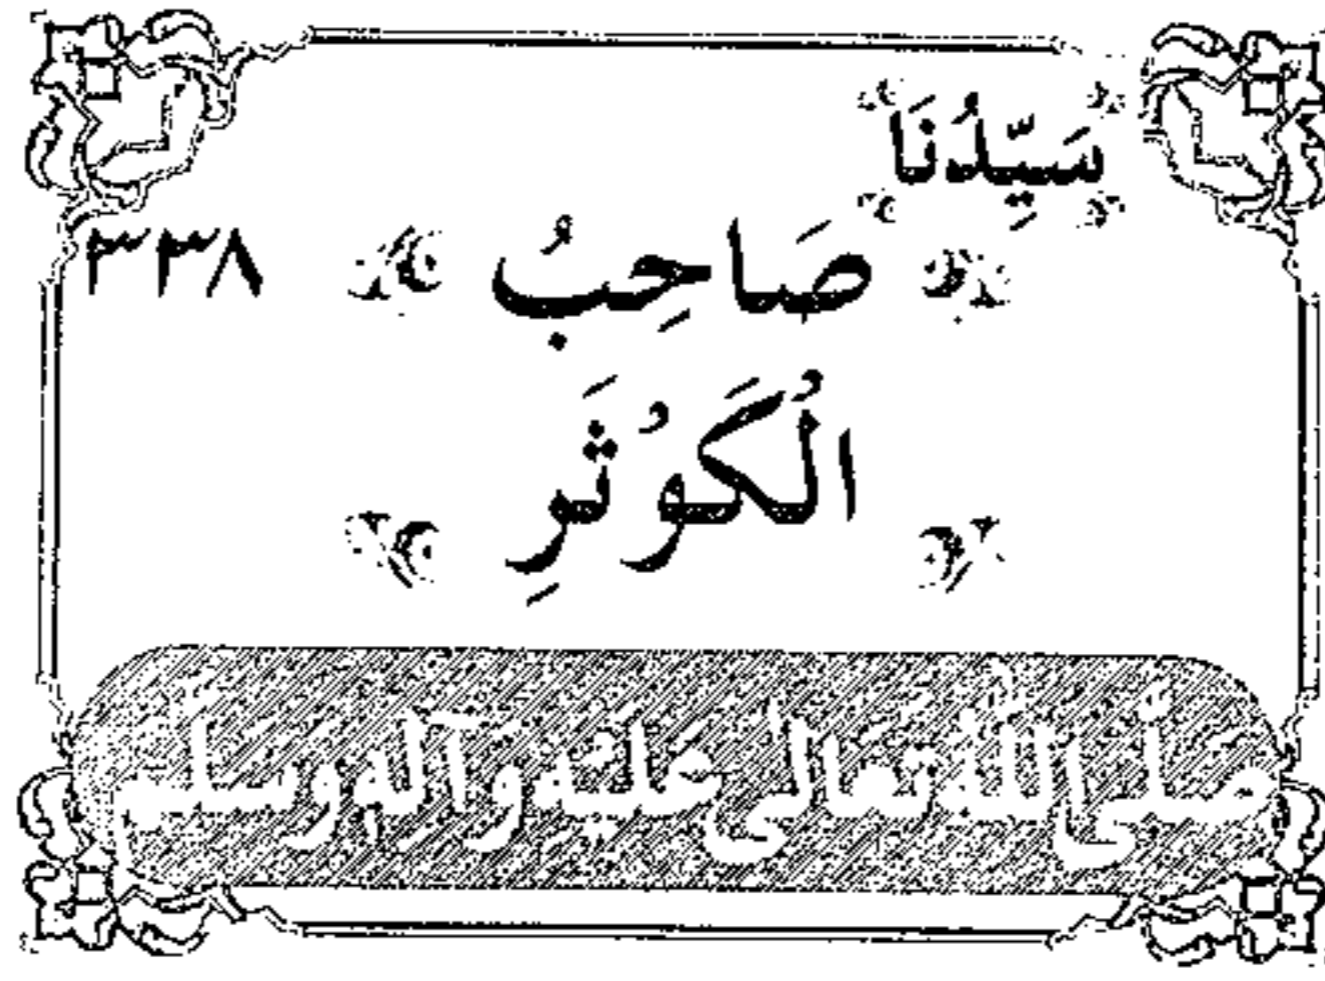 سَيِّدُنَا
صَاحِبُ ٣٣٨
الْكَوْثَرِ
صلى الله تعالى عليه وآله وسلم